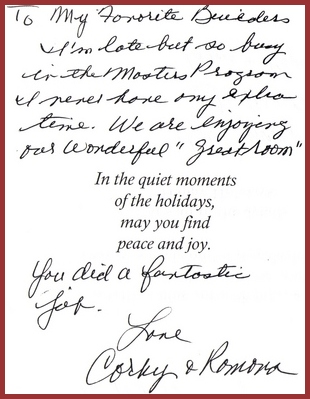 To My Favorite Builders
I'm late but so busy
in the Masters Program
I never have any extra
time. We are enjoying
our wonderful "Great room"
In the quiet moments
of the holidays,
may you find
peace and joy.
You did a fantastic
job.
Love
Corky & Romona